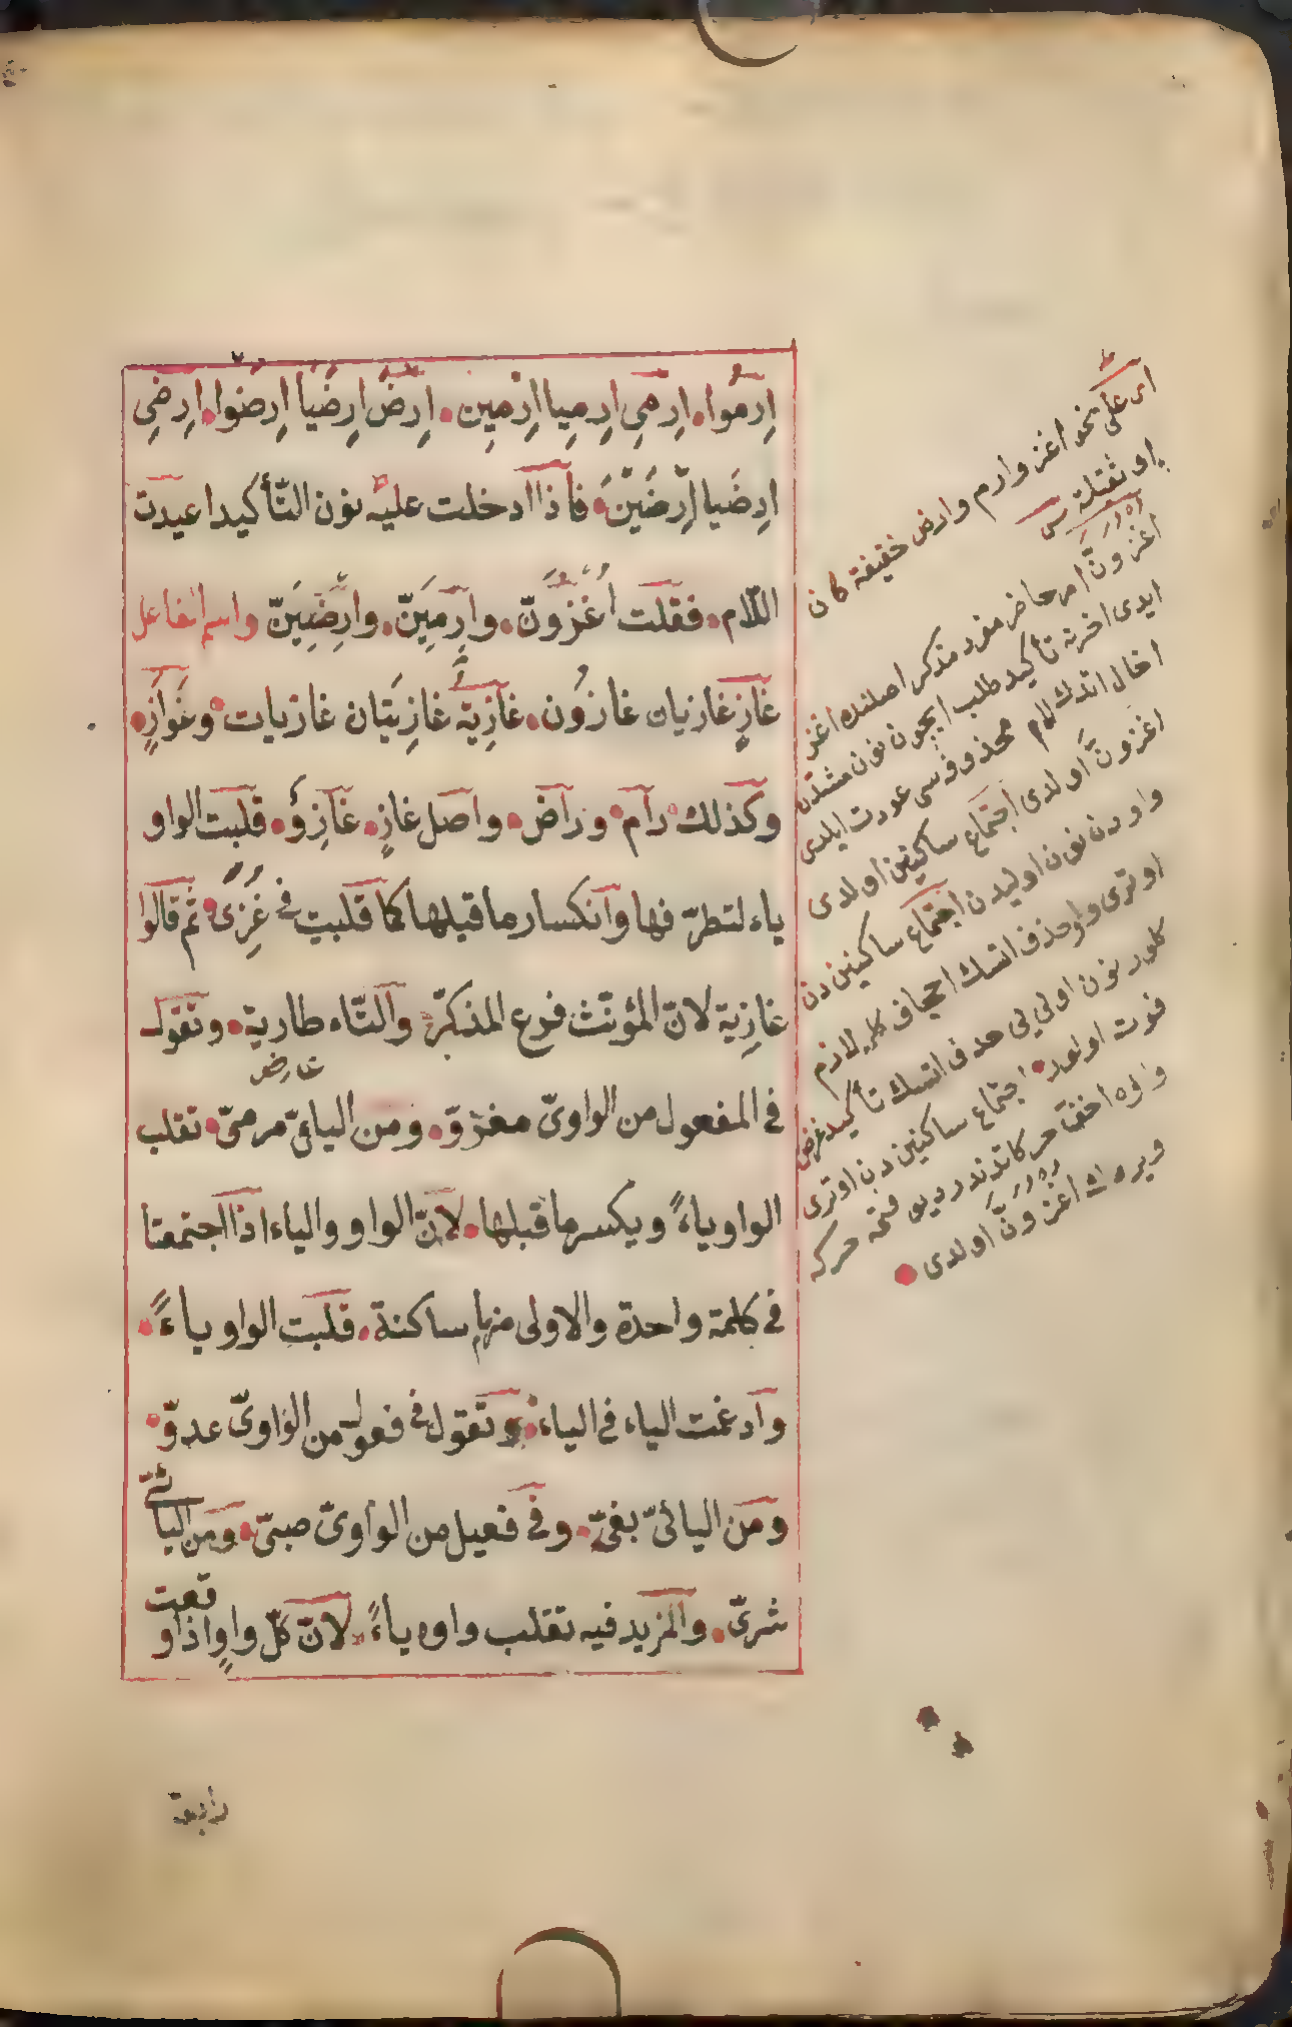 اِرمُوا. اِرمِي اِرمِيا اِرمِين. اِرضَ اِرضَيا اِرضَوا. اِرضِي
اِرضَيا اِرضَيْنَ. فاذا ادخلت عليه نون التّأكيد اعيدت
اللّام. فقلت اُغزُوَنّ. وارمِيَنّ. وارضَيَنّ واسم الفاعل
غازٍ غازيان غازُون. غازِية غازِيتان غازيات. وغَوازٍ.
وكذلك رام. وراض. واصل غازٍ. غازِوٌ. قلبت الواو
ياء لتطرّفها وانكسار ما قبلها كما قلبت في غُزِى. ثم قالوا
غازِية لانّ المؤنّث فرع المذكّر والتّاء طارية. وتقول
عارض
في المفعول من الواوىّ مغزوّ. ومن اليائىّ مرمىّ. تقلب
الواو ياءً ويكسر ما قبلها. لانّ الواو والياء اذا اجتمعتا
في كلمة واحدة والاولى منهما ساكنة. قلبت الواو ياءً.
وادغمت الياء في الياء. وتقول في فعول من الواوىّ عدوّ.
ومن اليائىّ بغىّ. وفي فعيل من الواوىّ صبىّ. ومن اليائى
شرىّ. والمزيد فيه تقلب واوه ياءً. لانّ كلّ واوٍ اذا وقعت
رابعة
اى على نحو اغز وارم وارض خفيفة كان
او ثقيلة
اغزونّ امر حاضر مفرد مذكر اصلنده اغز
ايدى اخرنه تأكيد طلب ايچون نون مشدّده
ادخال اتدك لام محذوفسى عودت ايلدى
اغزونّ اولدى اجتماع ساكنين اولدى
واودن نون اوليدن اجتماع ساكنين دن
اوترى واو حذف اتسك اجحاف كلمه لازم
كلور نون اولى يى حذف اتسك تأكيد غرض
فوت اولور. اجتماع ساكنين دن اوترى
واوه اخفّ حركاتدندر ديو فتحه حركه
ويردك اغزونّ اولدى.